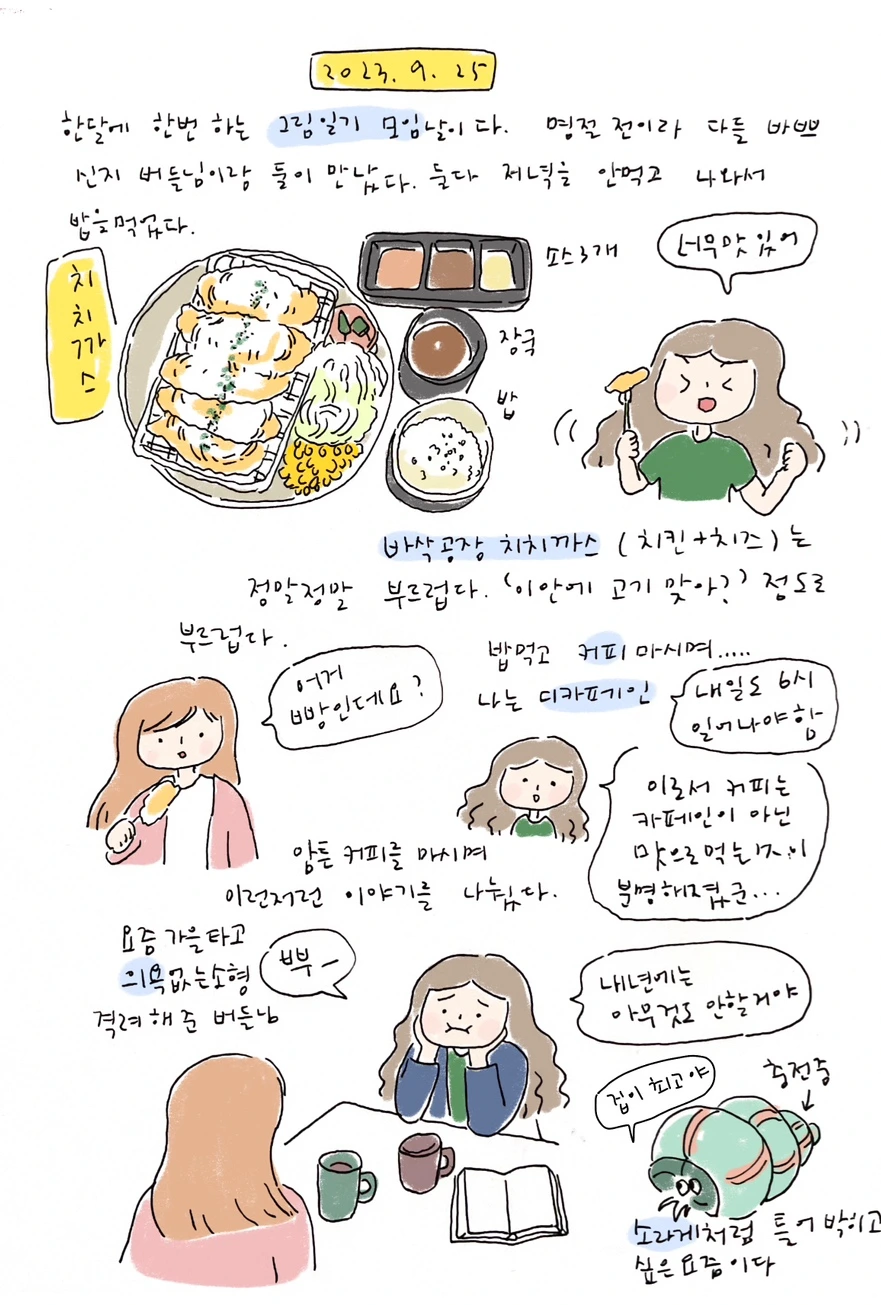 2023. 9. 25
한달에 한번 하는 그림일기 모임날이다. 명절 전이라 다들 바쁘
신지 버들님이랑 둘이 만났다. 둘다 저녁을 안먹고 나와서
밥을먹었다.
치
치
까
스
소스3개
장국
밥
너무맛있어
바삭공장 치치까스 (치킨+치즈)는
정말정말 부르럽다. '이안에 고기 맞아?' 정도로
부르럽다.
어거
빵인데요?
밥먹고 커피 마시며.....
나는 디카페인
내일도 6시
일어나야함
이로서 커피는
카페인이 아닌
맛으로먹는것이
분명해졌군...
암튼 커피를 마시며
이런저런 이야기를 나눴다.
요즘 가을타고
의욕없는소형
격려해준 버들님
뿌ㅡ
내년에는
아무것도 안할거야
집이 최고야
충전중
소라게처럼 틀어박히고
싶은요즘이다